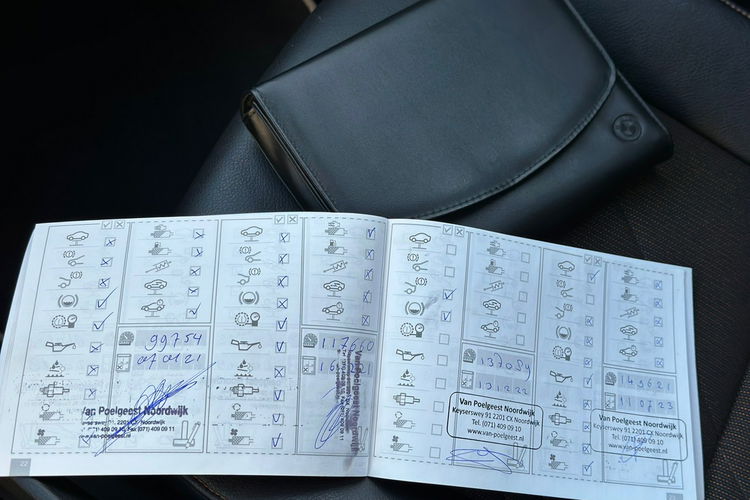 99754
07 01 21
Van Poelgeest Noordwijk
2201 CX Noordwijk
409 09 10 Fax (071) 409 09 11
www.van-poelgeest.nl
22
117660
Van Poelgeest Noordwijk
137054
Van Poelgeest Noordwijk
Keyserswey 91 2201 CX Noordwijk
Tel. (071) 409 09 10
www.van-poelgeest.nl
149621
11 07 23
Van Poelgeest Noordwijk
Keyserswey 91 2201 CX Noordwijk
Tel. (071) 409 09 10
www.van-poelgeest.nl